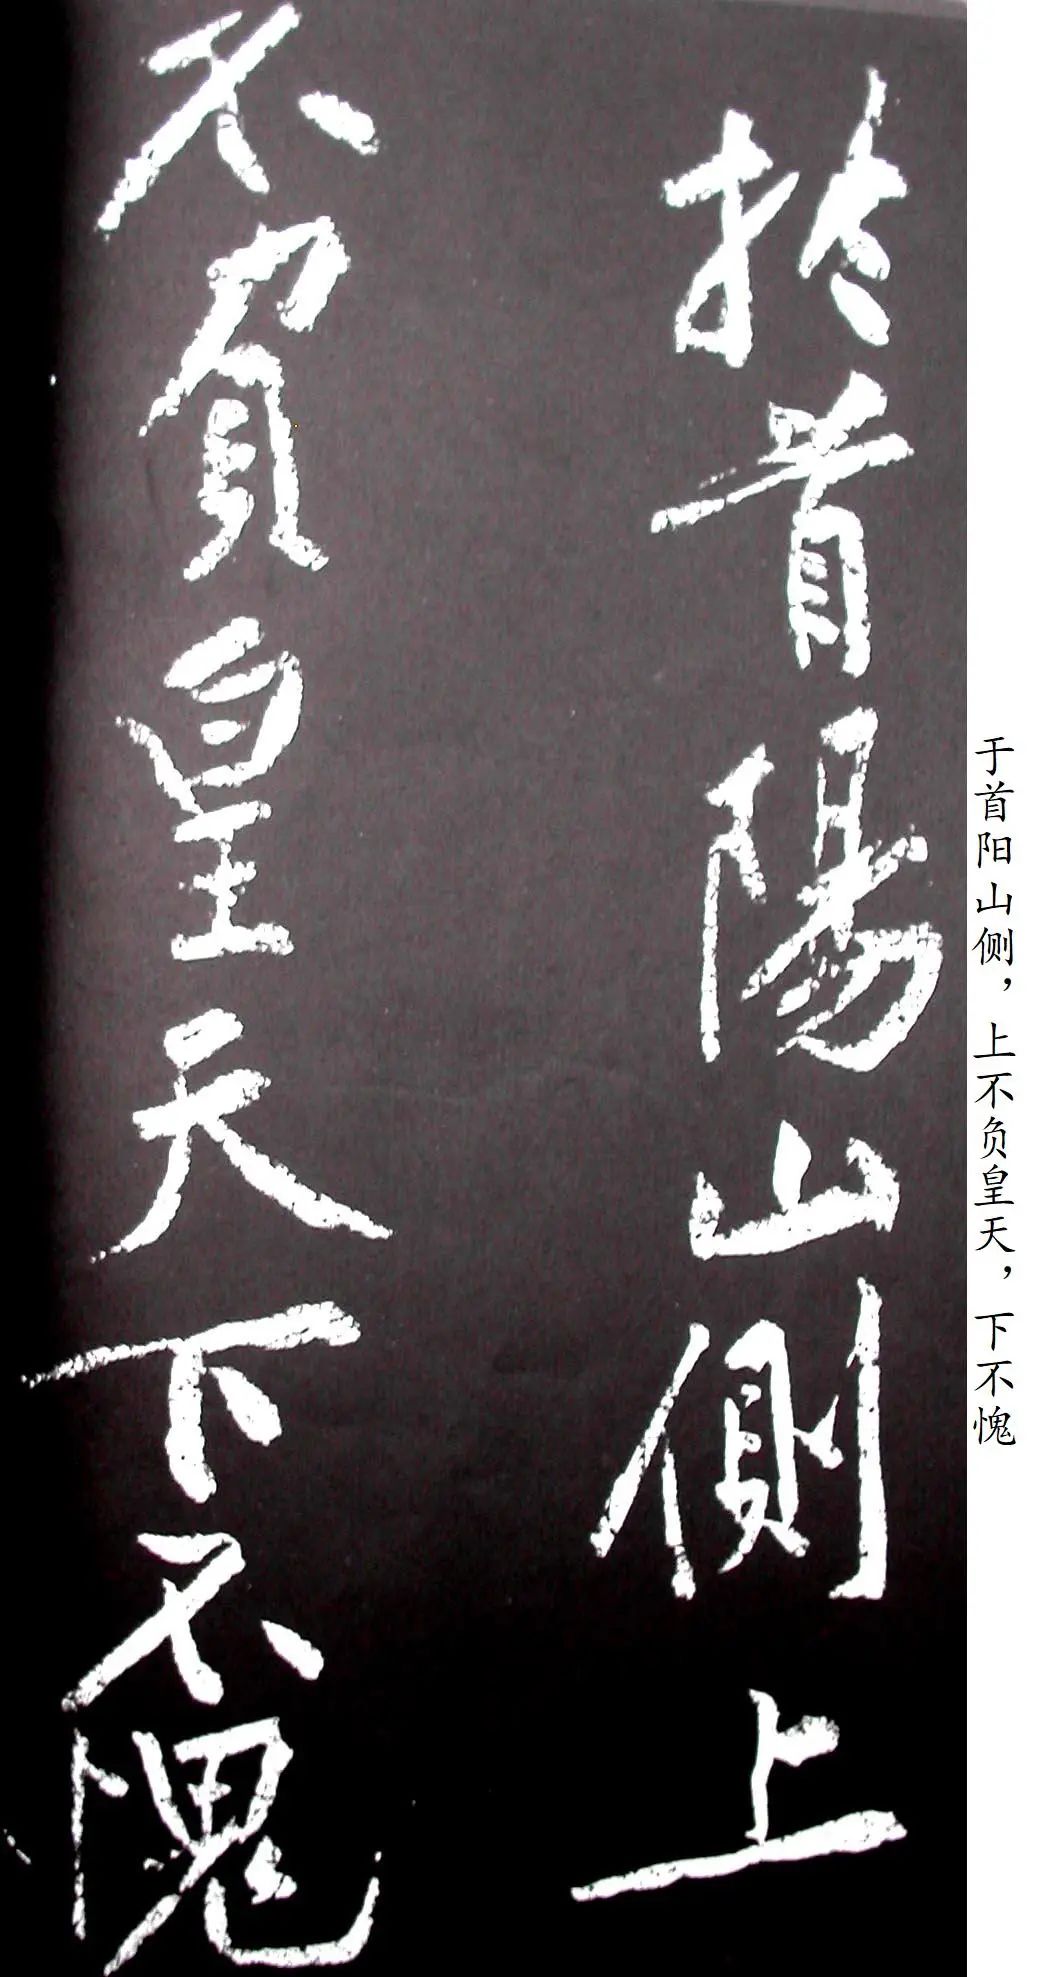 於首陽山側上
不負皇天下不愧
于首阳山侧，上不负皇天，下不愧